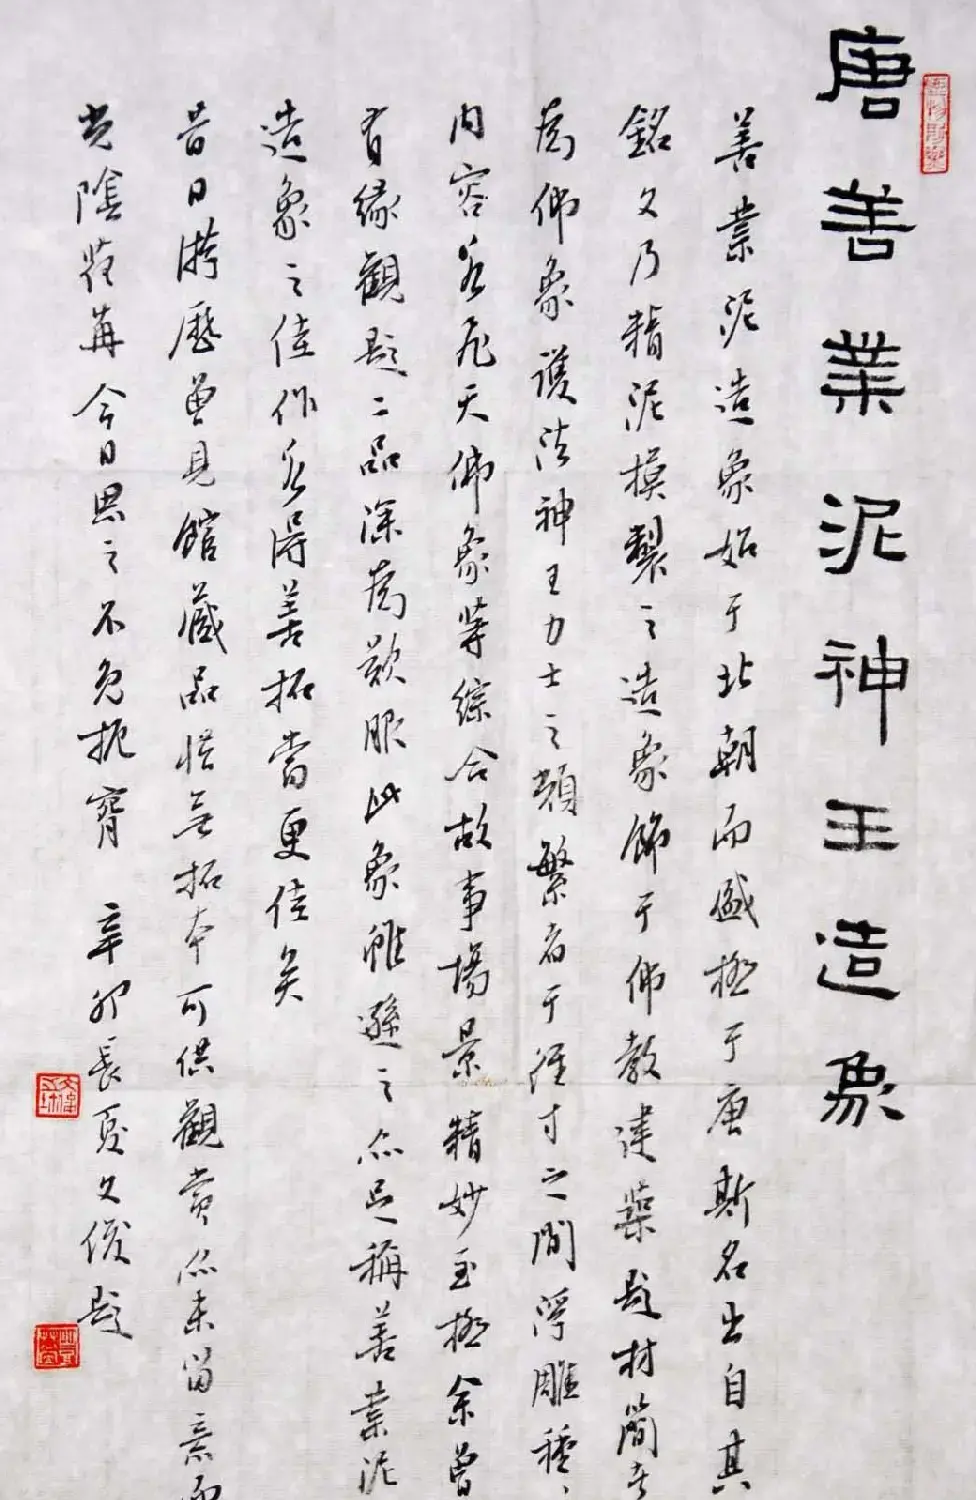 唐善業泥神王造象
善業泥造象始于北朝而盛極于唐斯名出自其
銘文乃精泥摸製之造象飾于佛教建築題材簡者
為佛象護法神王力士之類繁者于徑寸之間浮雕種種
内容若飛天佛象等綜合故事場景精妙至極余曾
有緣觀題二品深為歎服此象雖遜之亦足稱善業泥
造象之佳作若得善拓當更佳矣
昔日游歷曾見館藏品惜無拓本可供觀賞亦未留意而
光陰荏苒今日思之不免扼腕 辛卯長夏文俊題